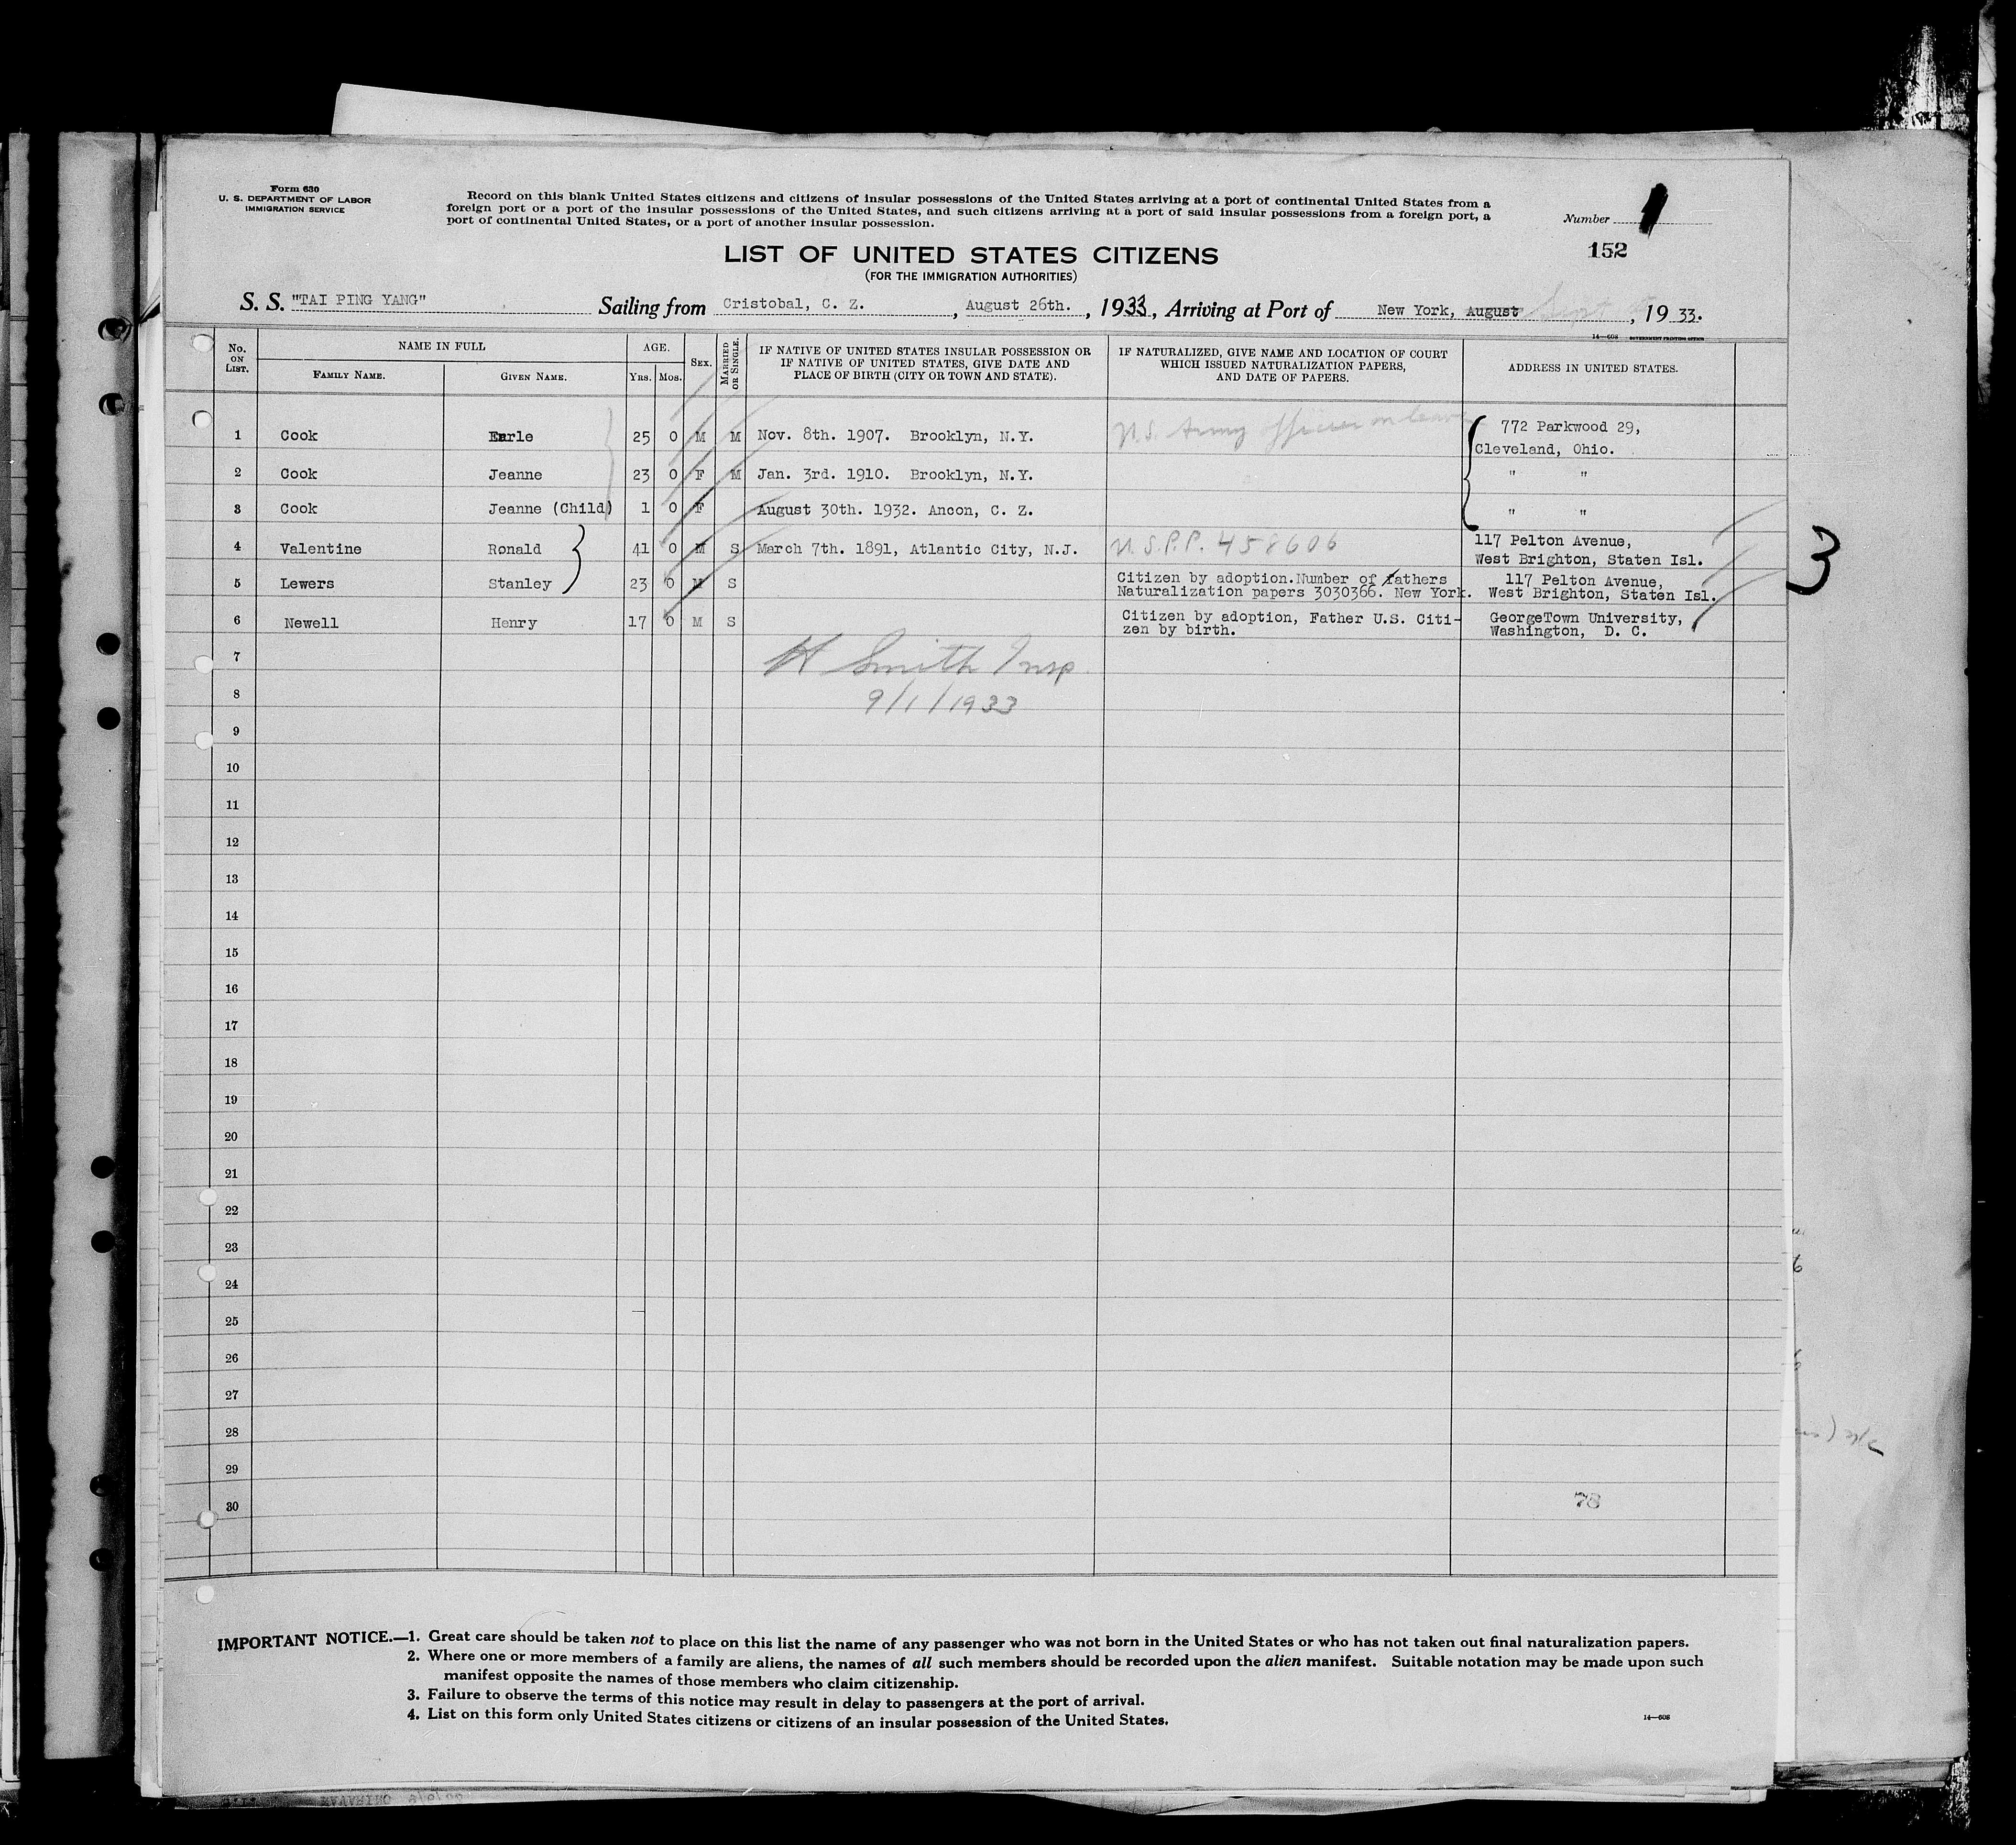 Form 630
U. S. DEPARTMENT OF LABOR
IMMIGRATION SERVICE
Record on this blank United States citizens and citizens of insular possessions of the United States arriving at a port of continental United States from a
foreign port or a port of the insular possessions of the United States, and such citizens arriving at a port of said insular possessions from a foreign port, a
port of continental United States, or a port of another insular possession.
Number 1
152
LIST OF UNITED STATES CITIZENS
(FOR THE IMMIGRATION AUTHORITIES)
S. S. "TAI PING YANG" Sailing from Cristobal, C. Z., August 26th., 1933, Arriving at Port of New York, August Sept, 1933.
14—608 GOVERNMENT PRINTING OFFICE
No. ON LIST. NAME IN FULL AGE. SEX. MARRIED OR SINGLE. IF NATIVE OF UNITED STATES INSULAR POSSESSION OR IF NATIVE OF UNITED STATES, GIVE DATE AND PLACE OF BIRTH (CITY OR TOWN AND STATE). IF NATURALIZED, GIVE NAME AND LOCATION OF COURT WHICH ISSUED NATURALIZATION PAPERS, AND DATE OF PAPERS. ADDRESS IN UNITED STATES.
FAMILY NAME. GIVEN NAME. YRS. MOS.
1 Cook Earle 25 0 M M Nov. 8th. 1907. Brooklyn, N.Y. U.S. Army officer on leave 772 Parkwood 29,
Cleveland, Ohio.
2 Cook Jeanne 23 0 F M Jan. 3rd. 1910. Brooklyn, N.Y. " "
3 Cook Jeanne (Child) 1 0 F August 30th. 1932. Ancon, C. Z. " "
4 Valentine Ronald 41 0 M S March 7th. 1891, Atlantic City, N.J. U.S.P.P. 458606 117 Pelton Avenue,
West Brighton, Staten Isl.
3
5 Lewers Stanley 23 0 M S Citizen by adoption. Number of fathers 117 Pelton Avenue,
Naturalization papers 3030366. New York. West Brighton, Staten Isl.
6 Newell Henry 17 0 M S Citizen by adoption, Father U.S. Citi- GeorgeTown University,
zen by birth. Washington, D. C.
7 H Smith Insp
8 9/1/1933
9
10
11
12
13
14
15
16
17
18
19
20
21
22
23
24
25
26
27
28
29
30 78
IMPORTANT NOTICE.—1. Great care should be taken not to place on this list the name of any passenger who was not born in the United States or who has not taken out final naturalization papers.
2. Where one or more members of a family are aliens, the names of all such members should be recorded upon the alien manifest. Suitable notation may be made upon such
manifest opposite the names of those members who claim citizenship.
3. Failure to observe the terms of this notice may result in delay to passengers at the port of arrival.
4. List on this form only United States citizens or citizens of an insular possession of the United States.
14—608